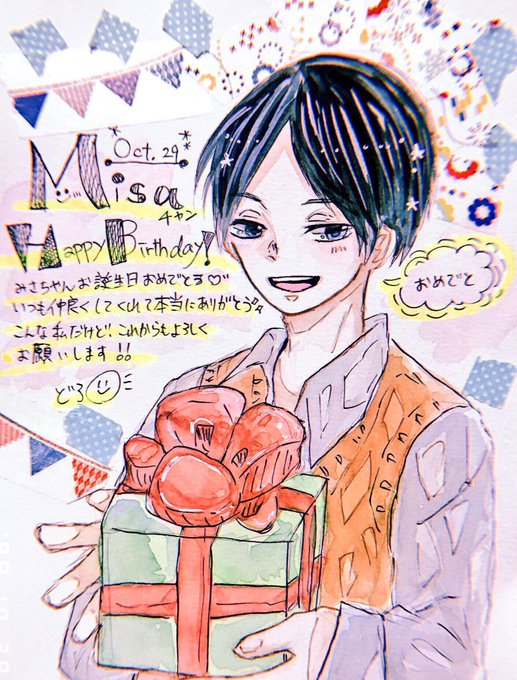 Oct. 29
Misa
チャン
Happy Birthday!
みさちゃんお誕生日おめでとう♡
いつも仲良くしてくれて本当にありがとう
こんな私だけど!これからもよろしく
お願いします!!
どろ
おめでと